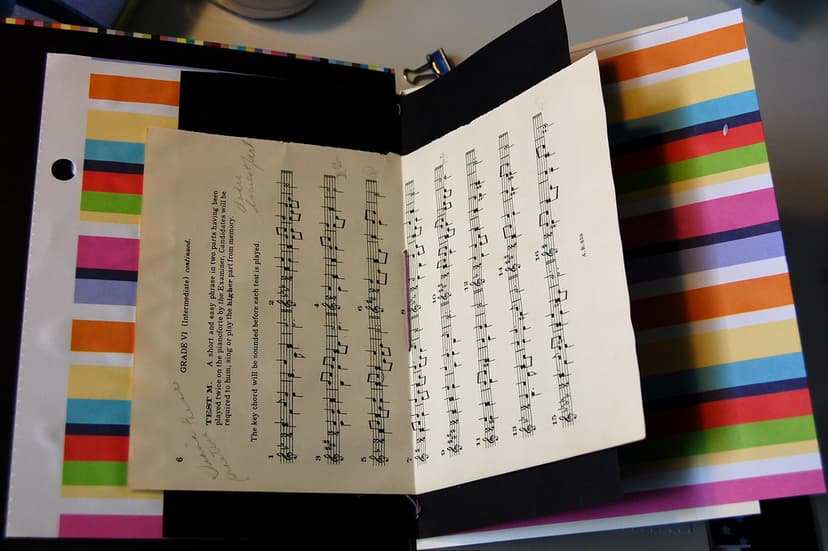 6 GRADE VI (Intermediate) continued.
TEST M. A short and easy phrase in two parts having been
played twice on the pianoforte by the Examiner, Candidates will be
required to hum, sing or play the higher part from memory.
The key chord will be sounded before each test is played.
1 2
3 4
5 6
7 8
9 10
11 12
13 14
15 16